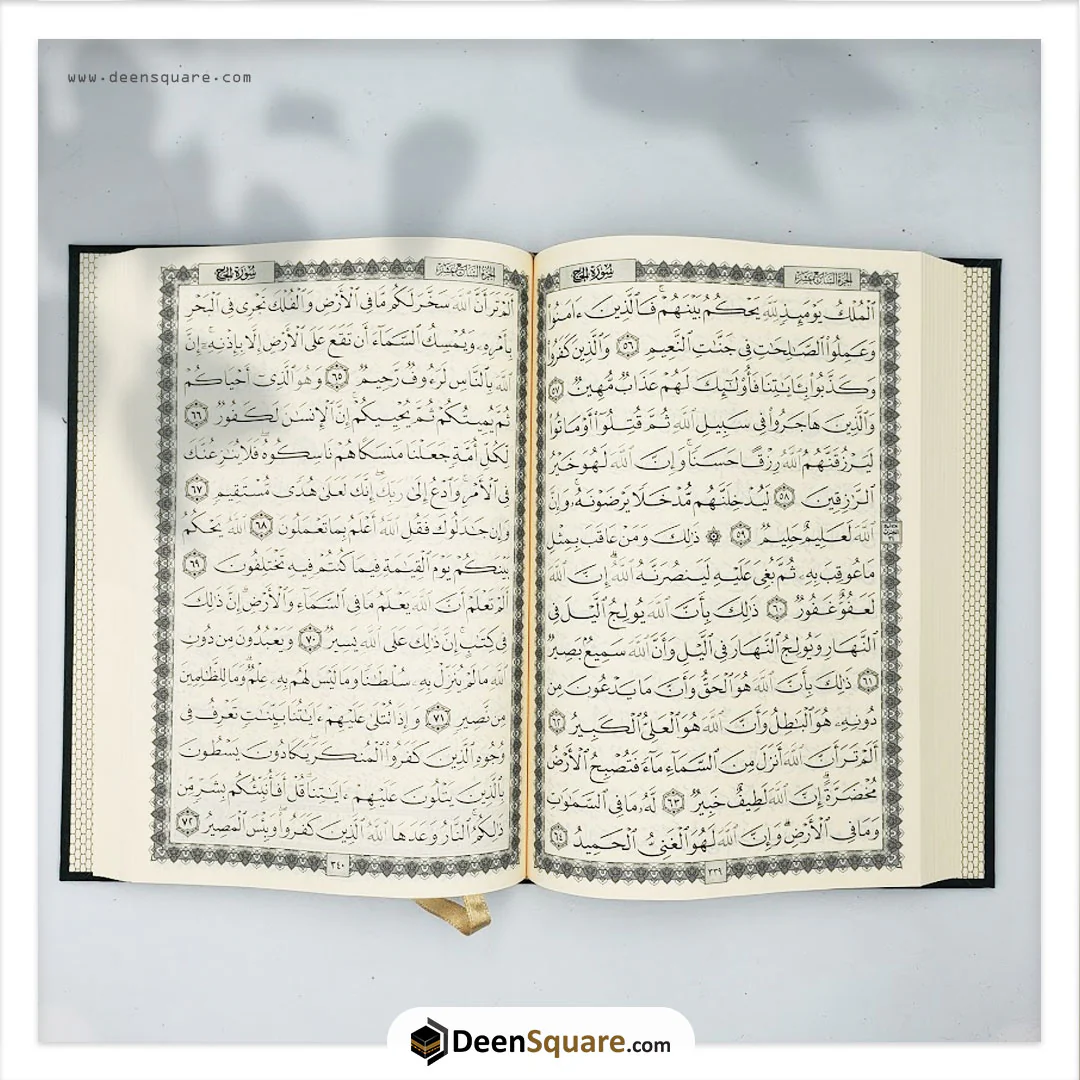 www.deensquare.com
الجزء السابع عشر سورة الحج
ٱلْمُلْكُ يَوْمَئِذٍ لِّلَّهِ يَحْكُمُ بَيْنَهُمْ ۚ فَٱلَّذِينَ ءَامَنُوا۟
وَعَمِلُوا۟ ٱلصَّٰلِحَٰتِ فِى جَنَّٰتِ ٱلنَّعِيمِ ٥٦ وَٱلَّذِينَ كَفَرُوا۟
وَكَذَّبُوا۟ بِـَٔايَٰتِنَا فَأُو۟لَٰٓئِكَ لَهُمْ عَذَابٌ مُّهِينٌ ٥٧
وَٱلَّذِينَ هَاجَرُوا۟ فِى سَبِيلِ ٱللَّهِ ثُمَّ قُتِلُوٓا۟ أَوْ مَاتُوا۟
لَيَرْزُقَنَّهُمُ ٱللَّهُ رِزْقًا حَسَنًا ۚ وَإِنَّ ٱللَّهَ لَهُوَ خَيْرُ
ٱلرَّٰزِقِينَ ٥٨ لَيُدْخِلَنَّهُم مُّدْخَلًا يَرْضَوْنَهُۥ ۗ وَإِنَّ
ٱللَّهَ لَعَلِيمٌ حَلِيمٌ ٥٩ ۞ ذَٰلِكَ وَمَنْ عَاقَبَ بِمِثْلِ
مَا عُوقِبَ بِهِۦ ثُمَّ بُغِىَ عَلَيْهِ لَيَنصُرَنَّهُ ٱللَّهُ ۗ إِنَّ ٱللَّهَ
لَعَفُوٌّ غَفُورٌ ٦٠ ذَٰلِكَ بِأَنَّ ٱللَّهَ يُولِجُ ٱلَّيْلَ فِى
ٱلنَّهَارِ وَيُولِجُ ٱلنَّهَارَ فِى ٱلَّيْلِ وَأَنَّ ٱللَّهَ سَمِيعٌۢ بَصِيرٌ
٦١ ذَٰلِكَ بِأَنَّ ٱللَّهَ هُوَ ٱلْحَقُّ وَأَنَّ مَا يَدْعُونَ مِن
دُونِهِۦ هُوَ ٱلْبَٰطِلُ وَأَنَّ ٱللَّهَ هُوَ ٱلْعَلِىُّ ٱلْكَبِيرُ ٦٢
أَلَمْ تَرَ أَنَّ ٱللَّهَ أَنزَلَ مِنَ ٱلسَّمَآءِ مَآءً فَتُصْبِحُ ٱلْأَرْضُ
مُخْضَرَّةً ۗ إِنَّ ٱللَّهَ لَطِيفٌ خَبِيرٌ ٦٣ لَّهُۥ مَا فِى ٱلسَّمَٰوَٰتِ
وَمَا فِى ٱلْأَرْضِ ۗ وَإِنَّ ٱللَّهَ لَهُوَ ٱلْغَنِىُّ ٱلْحَمِيدُ ٦٤
٣٣٩
الجزء السابع عشر سورة الحج
أَلَمْ تَرَ أَنَّ ٱللَّهَ سَخَّرَ لَكُم مَّا فِى ٱلْأَرْضِ وَٱلْفُلْكَ تَجْرِى فِى ٱلْبَحْرِ
بِأَمْرِهِۦ وَيُمْسِكُ ٱلسَّمَآءَ أَن تَقَعَ عَلَى ٱلْأَرْضِ إِلَّا بِإِذْنِهِۦٓ ۗ إِنَّ
ٱللَّهَ بِٱلنَّاسِ لَرَءُوفٌ رَّحِيمٌ ٦٥ وَهُوَ ٱلَّذِىٓ أَحْيَاكُمْ
ثُمَّ يُمِيتُكُمْ ثُمَّ يُحْيِيكُمْ ۗ إِنَّ ٱلْإِنسَٰنَ لَكَفُورٌ ٦٦
لِّكُلِّ أُمَّةٍ جَعَلْنَا مَنسَكًا هُمْ نَاسِكُوهُ ۖ فَلَا يُنَٰزِعُنَّكَ
فِى ٱلْأَمْرِ ۚ وَٱدْعُ إِلَىٰ رَبِّكَ ۖ إِنَّكَ لَعَلَىٰ هُدًى مُّسْتَقِيمٍ ٦٧
وَإِن جَٰدَلُوكَ فَقُلِ ٱللَّهُ أَعْلَمُ بِمَا تَعْمَلُونَ ٦٨ ٱللَّهُ يَحْكُمُ
بَيْنَكُمْ يَوْمَ ٱلْقِيَٰمَةِ فِيمَا كُنتُمْ فِيهِ تَخْتَلِفُونَ ٦٩
أَلَمْ تَعْلَمْ أَنَّ ٱللَّهَ يَعْلَمُ مَا فِى ٱلسَّمَآءِ وَٱلْأَرْضِ ۗ إِنَّ ذَٰلِكَ
فِى كِتَٰبٍ ۚ إِنَّ ذَٰلِكَ عَلَى ٱللَّهِ يَسِيرٌ ٧٠ وَيَعْبُدُونَ مِن دُونِ
ٱللَّهِ مَا لَمْ يُنَزِّلْ بِهِۦ سُلْطَٰنًا وَمَا لَيْسَ لَهُم بِهِۦ عِلْمٌ ۗ وَمَا لِلظَّٰلِمِينَ
مِن نَّصِيرٍ ٧١ وَإِذَا تُتْلَىٰ عَلَيْهِمْ ءَايَٰتُنَا بَيِّنَٰتٍ تَعْرِفُ فِى
وُجُوهِ ٱلَّذِينَ كَفَرُوا۟ ٱلْمُنكَرَ ۖ يَكَادُونَ يَسْطُونَ
بِٱلَّذِينَ يَتْلُونَ عَلَيْهِمْ ءَايَٰتِنَا ۗ قُلْ أَفَأُنَبِّئُكُم بِشَرٍّ مِّن
ذَٰلِكُمُ ۗ ٱلنَّارُ وَعَدَهَا ٱللَّهُ ٱلَّذِينَ كَفَرُوا۟ ۖ وَبِئْسَ ٱلْمَصِيرُ ٧٢
٣٤٠
DeenSquare.com